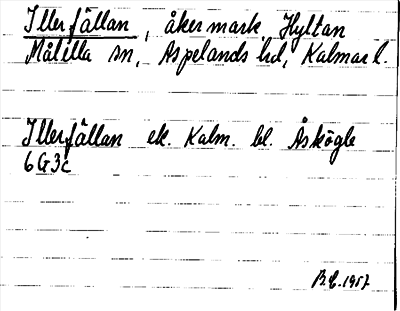 Illerfällan, åkermark Hyltan
Målilla sn, Aspelands hd, Kalmar l.
Illerfällan ek. Kalm. bl. Åskögle
6G3c
B.E. 1957